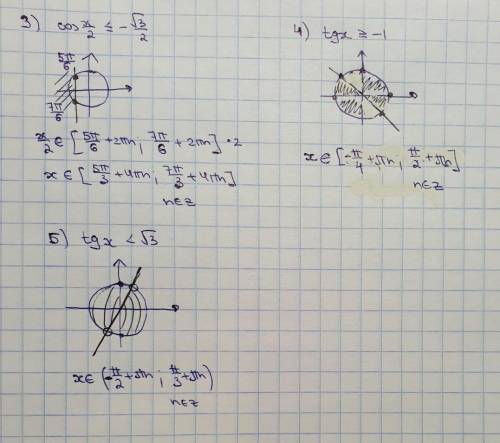 3) cos x/2 ≤ -√3/2
5π/6
7π/6
x/2 ∈ [5π/6 + 2πn ; 7π/6 + 2πn] •2
x ∈ [5π/3 + 4πn ; 7π/3 + 4πn]
n∈z
4) tgx ≥ -1
x ∈ [-π/4 + πn ; π/2 + πn]
n∈z
5) tgx < √3
x∈ (-π/2 + πn ; π/3 + πn)
n∈z